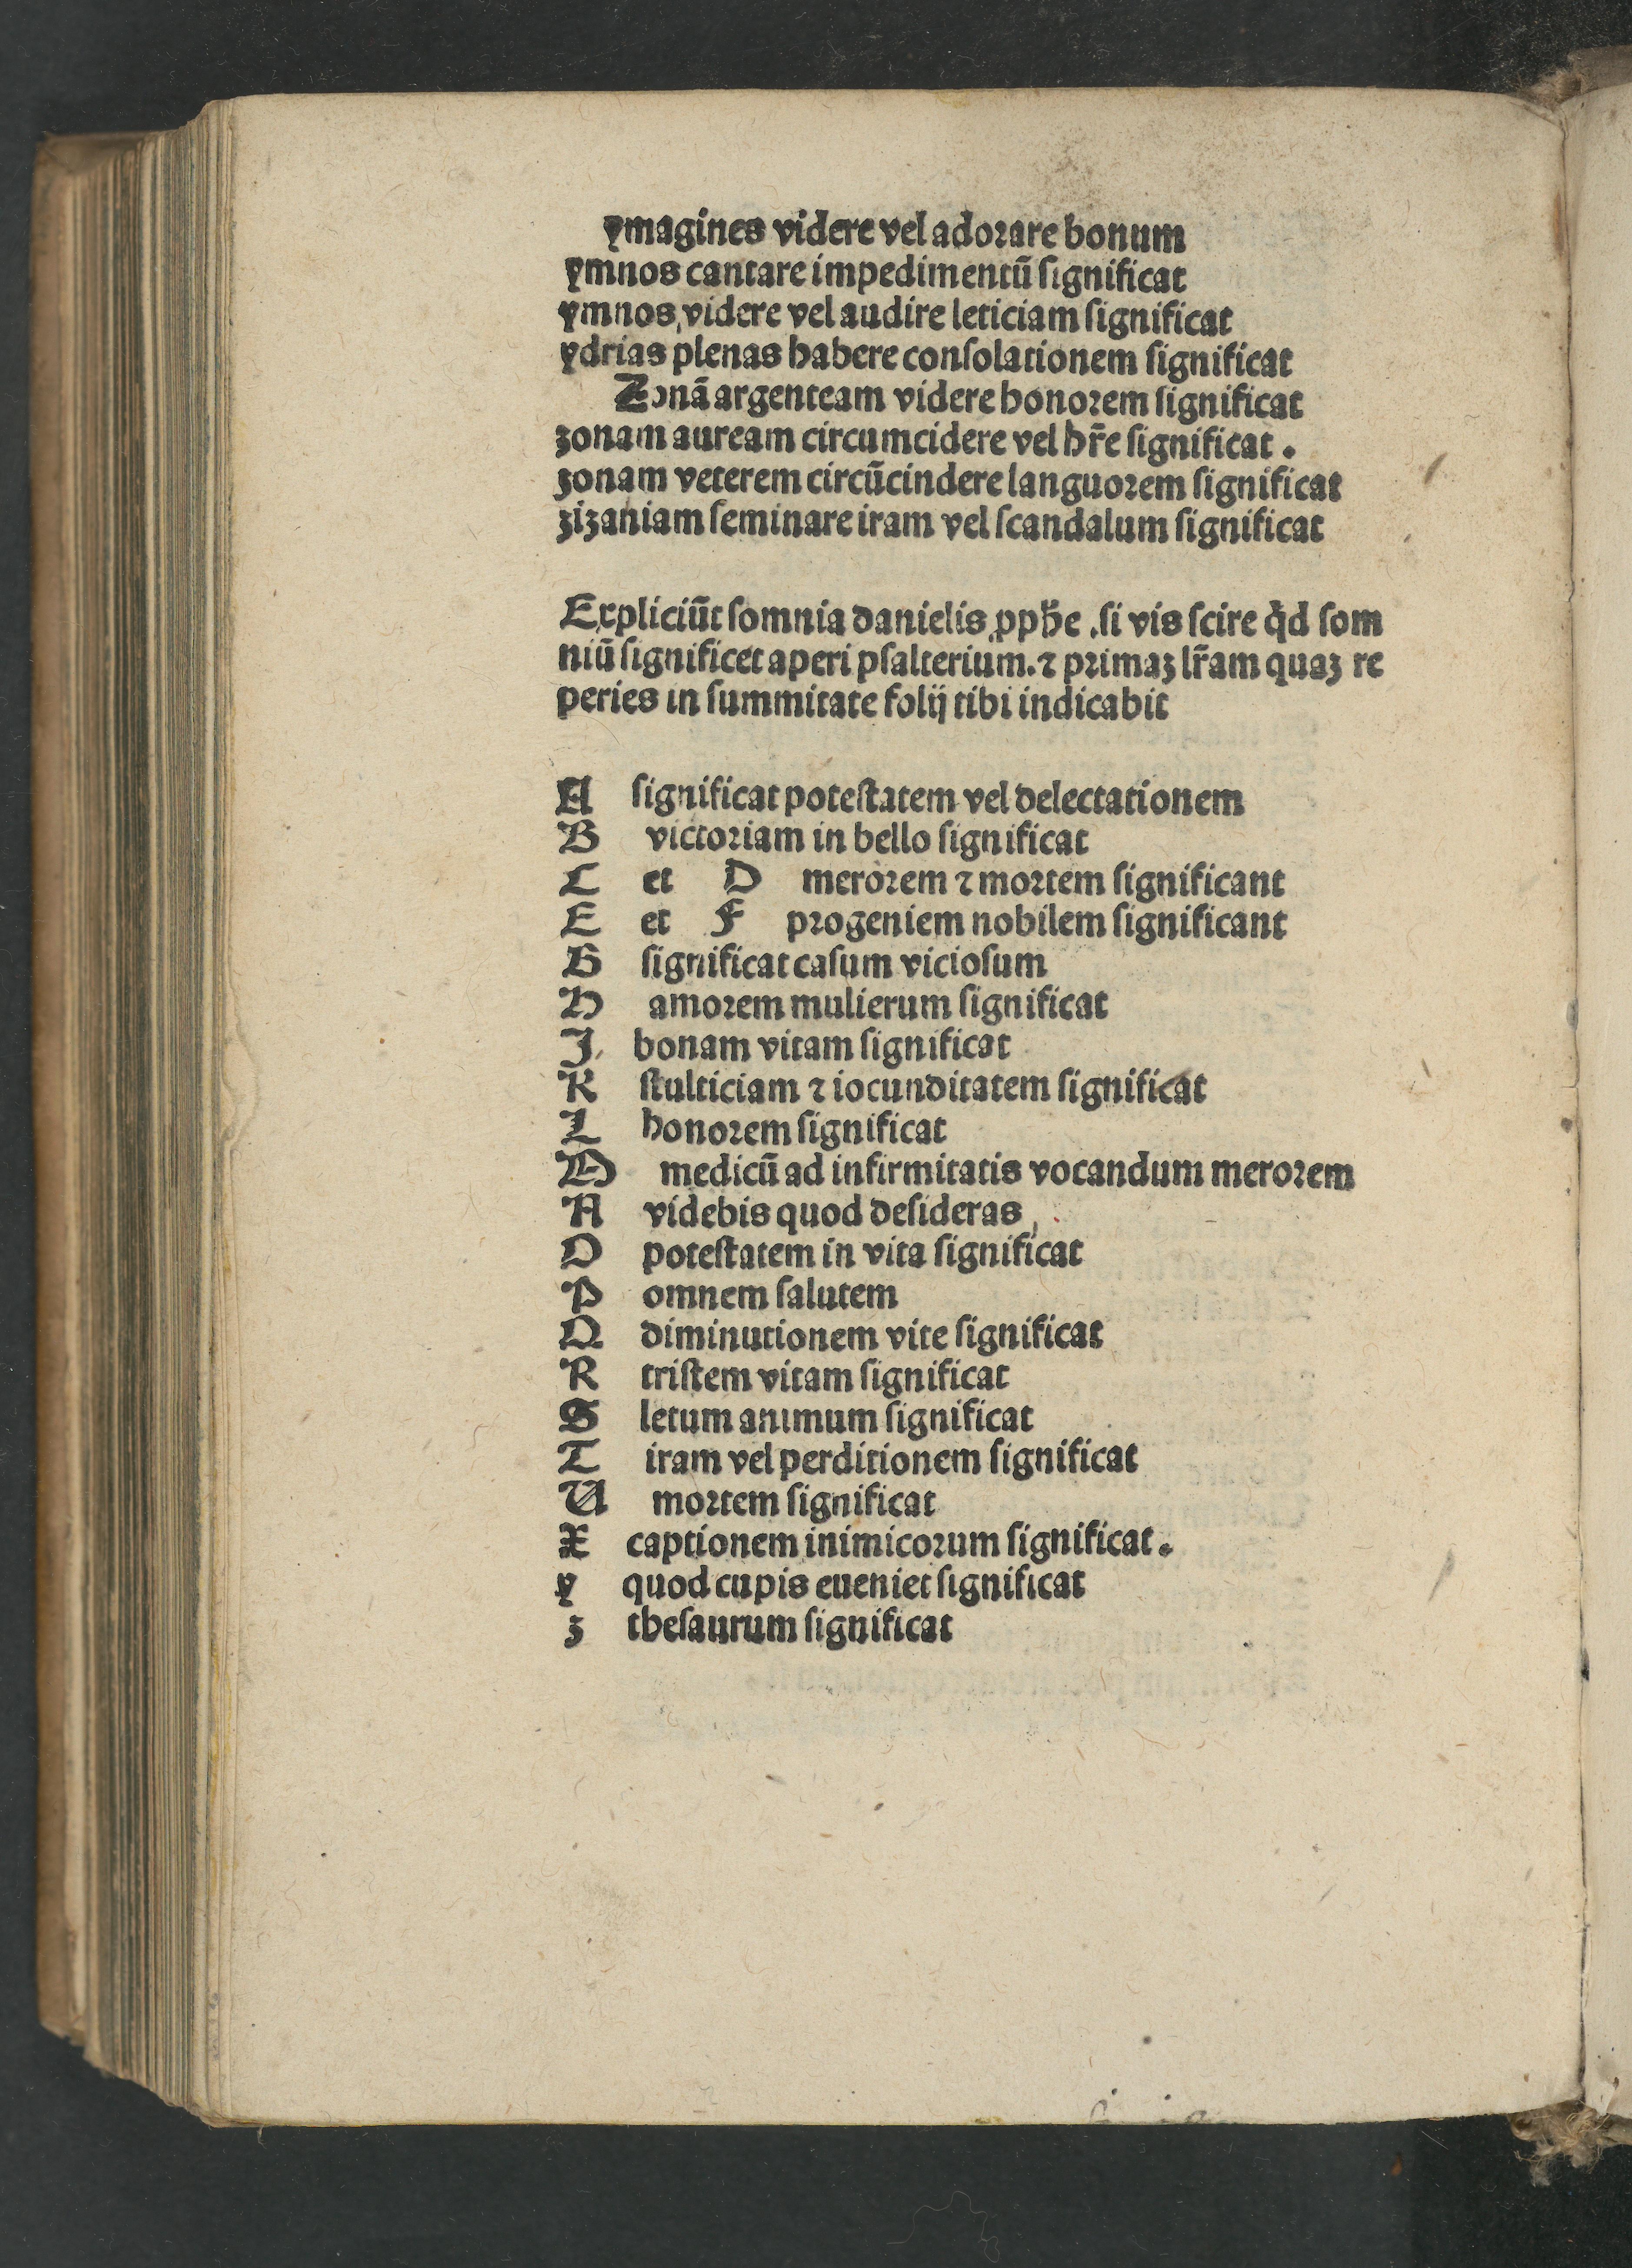 ymagines videre vel adorare bonum
ymnos cantare impedimentū ſignificat
ymnos videre vel audire leticiam ſignificat
ydrias plenas habere conſolationem ſignificat
Zonā argenteam videre honorem ſignificat
zonam auream circumcidere vel hr̄e ſignificat.
zonam veterem circūcindere languorem ſignificat
zizaniam ſeminare iram vel ſcandalum ſignificat
Expliciūt ſomnia danielis ꝓphē .ſi vis ſcire qd̓ ſom
niū ſignificet aperi pſalterium.⁊ primaꝫ lr̄am quaꝫ re
peries in ſummitate folij tibi indicabit
A ſignificat poteſtatem vel delectationem
B victoriam in bello ſignificat
C et D merorem ⁊ mortem ſignificant
E et F progeniem nobilem ſignificant
G ſignificat caſum vicioſum
H amorem mulierum ſignificat
J bonam vitam ſignificat
K ſtulticiam ⁊ iocunditatem ſignificat
L honorem ſignificat
M medicū ad infirmitatis vocandum merorem
N videbis quod deſideras
O poteſtatem in vita ſignificat
P omnem ſalutem
Q diminutionem vite ſignificat
R triſtem vitam ſignificat
S letum animum ſignificat
T iram vel perditionem ſignificat
U mortem ſignificat
X captionem inimicorum ſignificat.
y quod cupis eueniet ſignificat
z theſaurum ſignificat